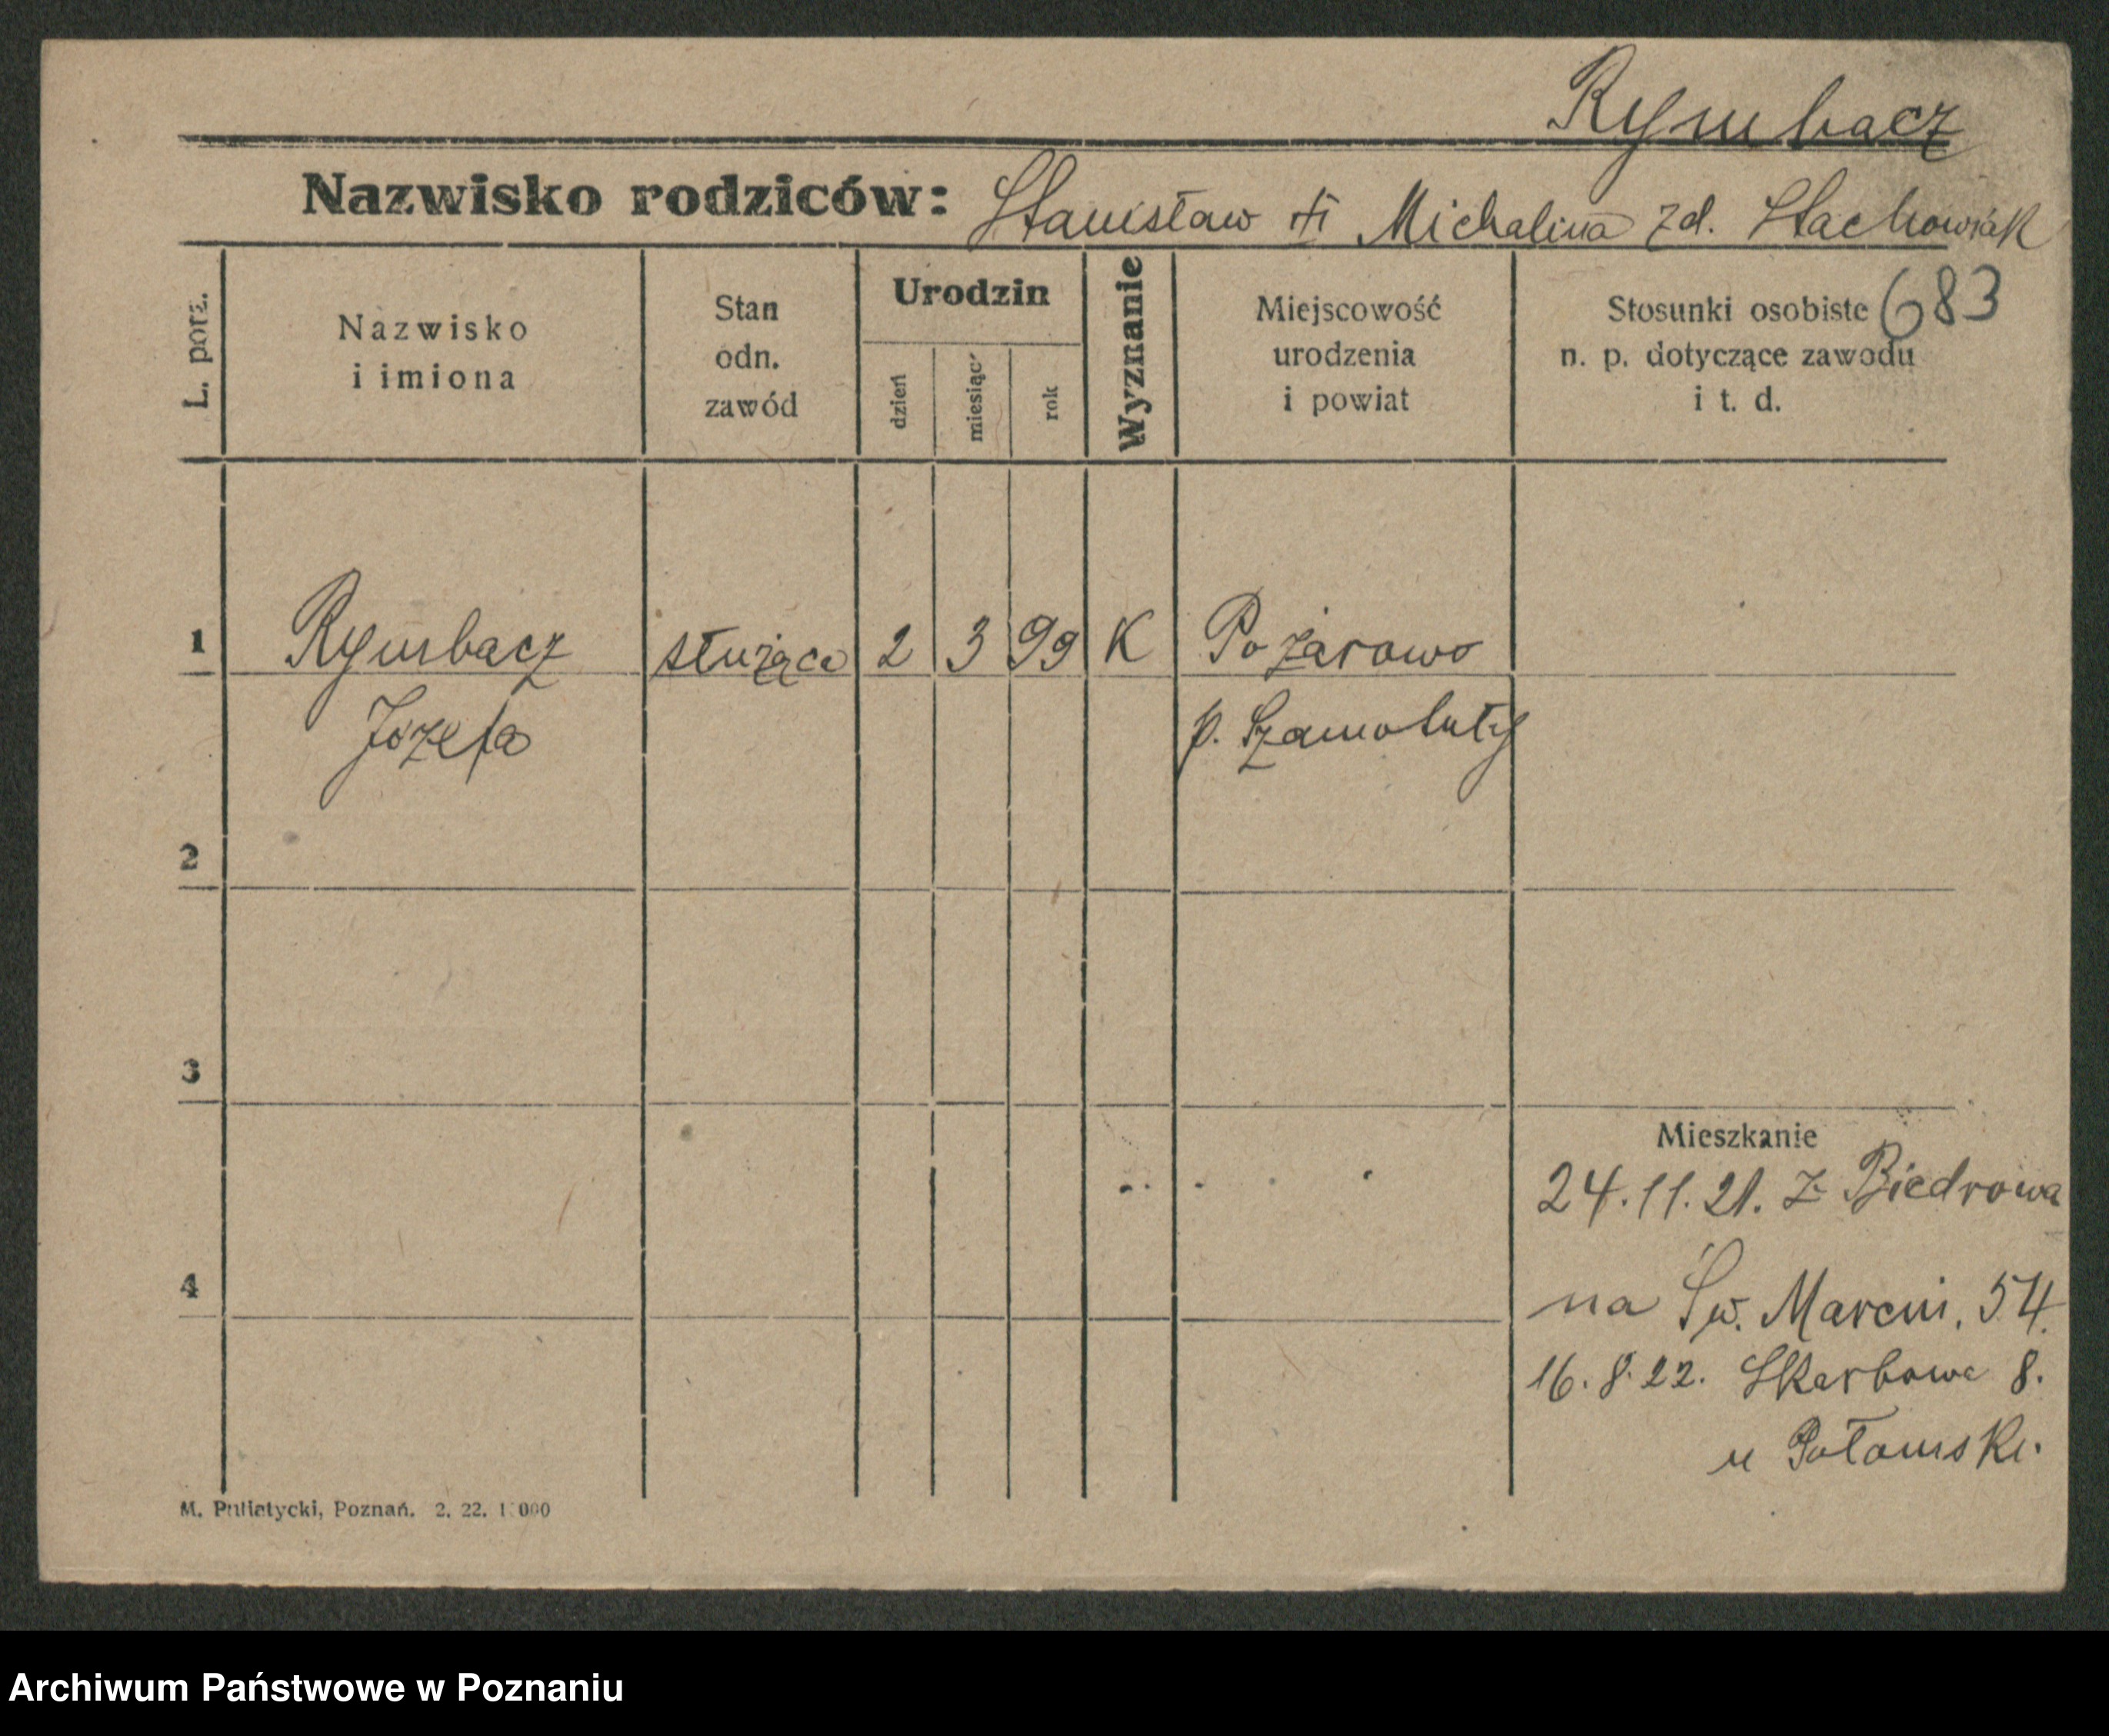 Rymbacz
Nazwisko rodziców: Stanisław i Michalina zd. Stachowiak
L. porz.
Nazwisko
i imiona
Stan
odn.
zawód
Urodzin
dzień
miesiąc
rok
Wyznanie
Miejscowość
urodzenia
i powiat
Stosunki osobiste 683
n. p. dotyczące zawodu
i t. d.
1 Rymbacz służąca 2 3 99 K Pożarowo
Józefa p. Szamotuły
2
3
Mieszkanie
24.11.21. z Biedrowa
4 na Św. Marcin. 54.
16.8.22. Skarbowa 8.
u
M. Poznań. 2. 22.
Archiwum Państwowe w Poznaniu